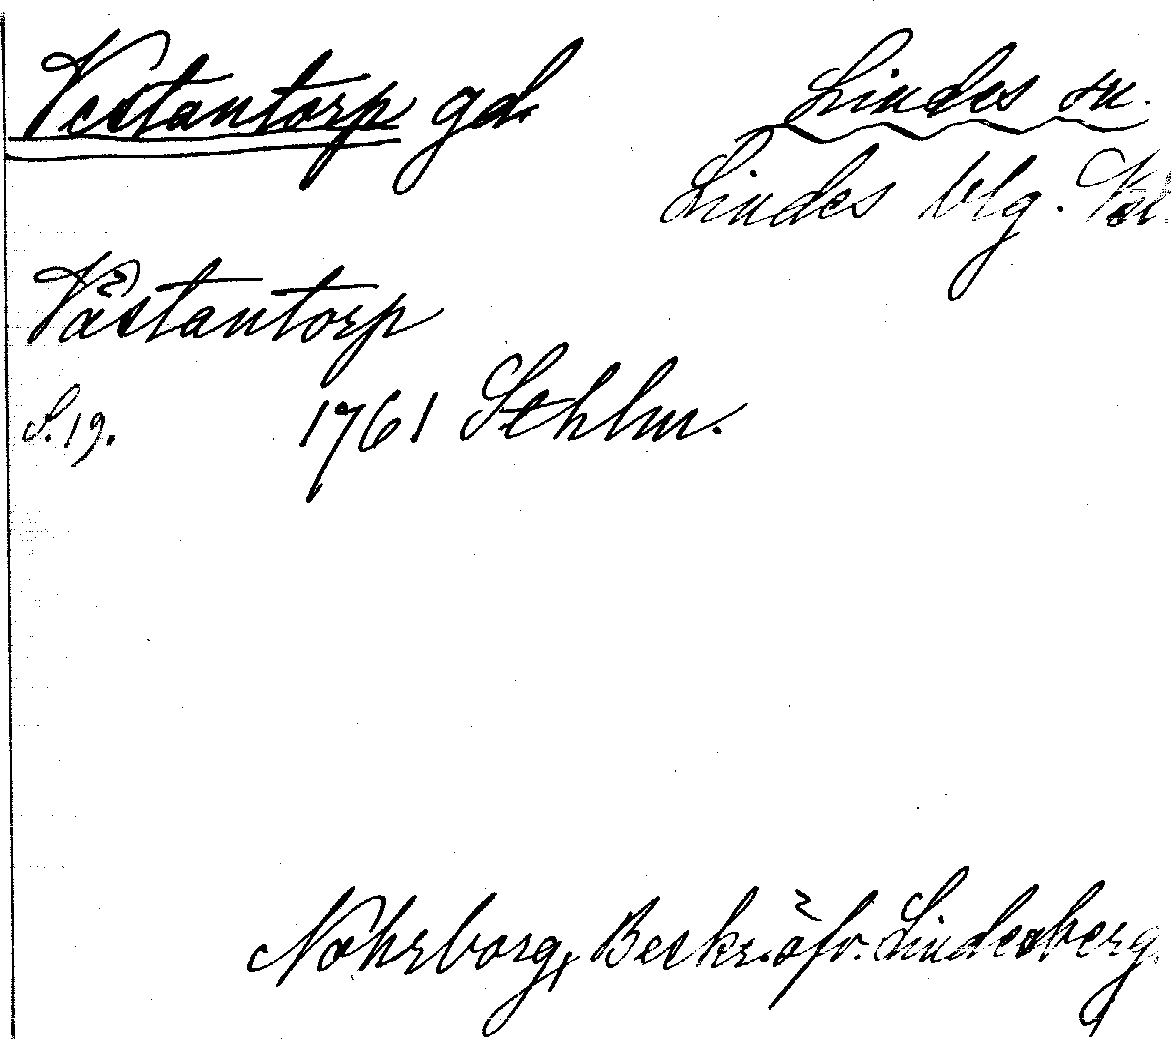 Vestantorp gd. Lindes sn.
Lindes blg.
Västantorp
S. 19. 1761 Sthlm.
Nohrborg, Beskr. öfv. Lindesberg.